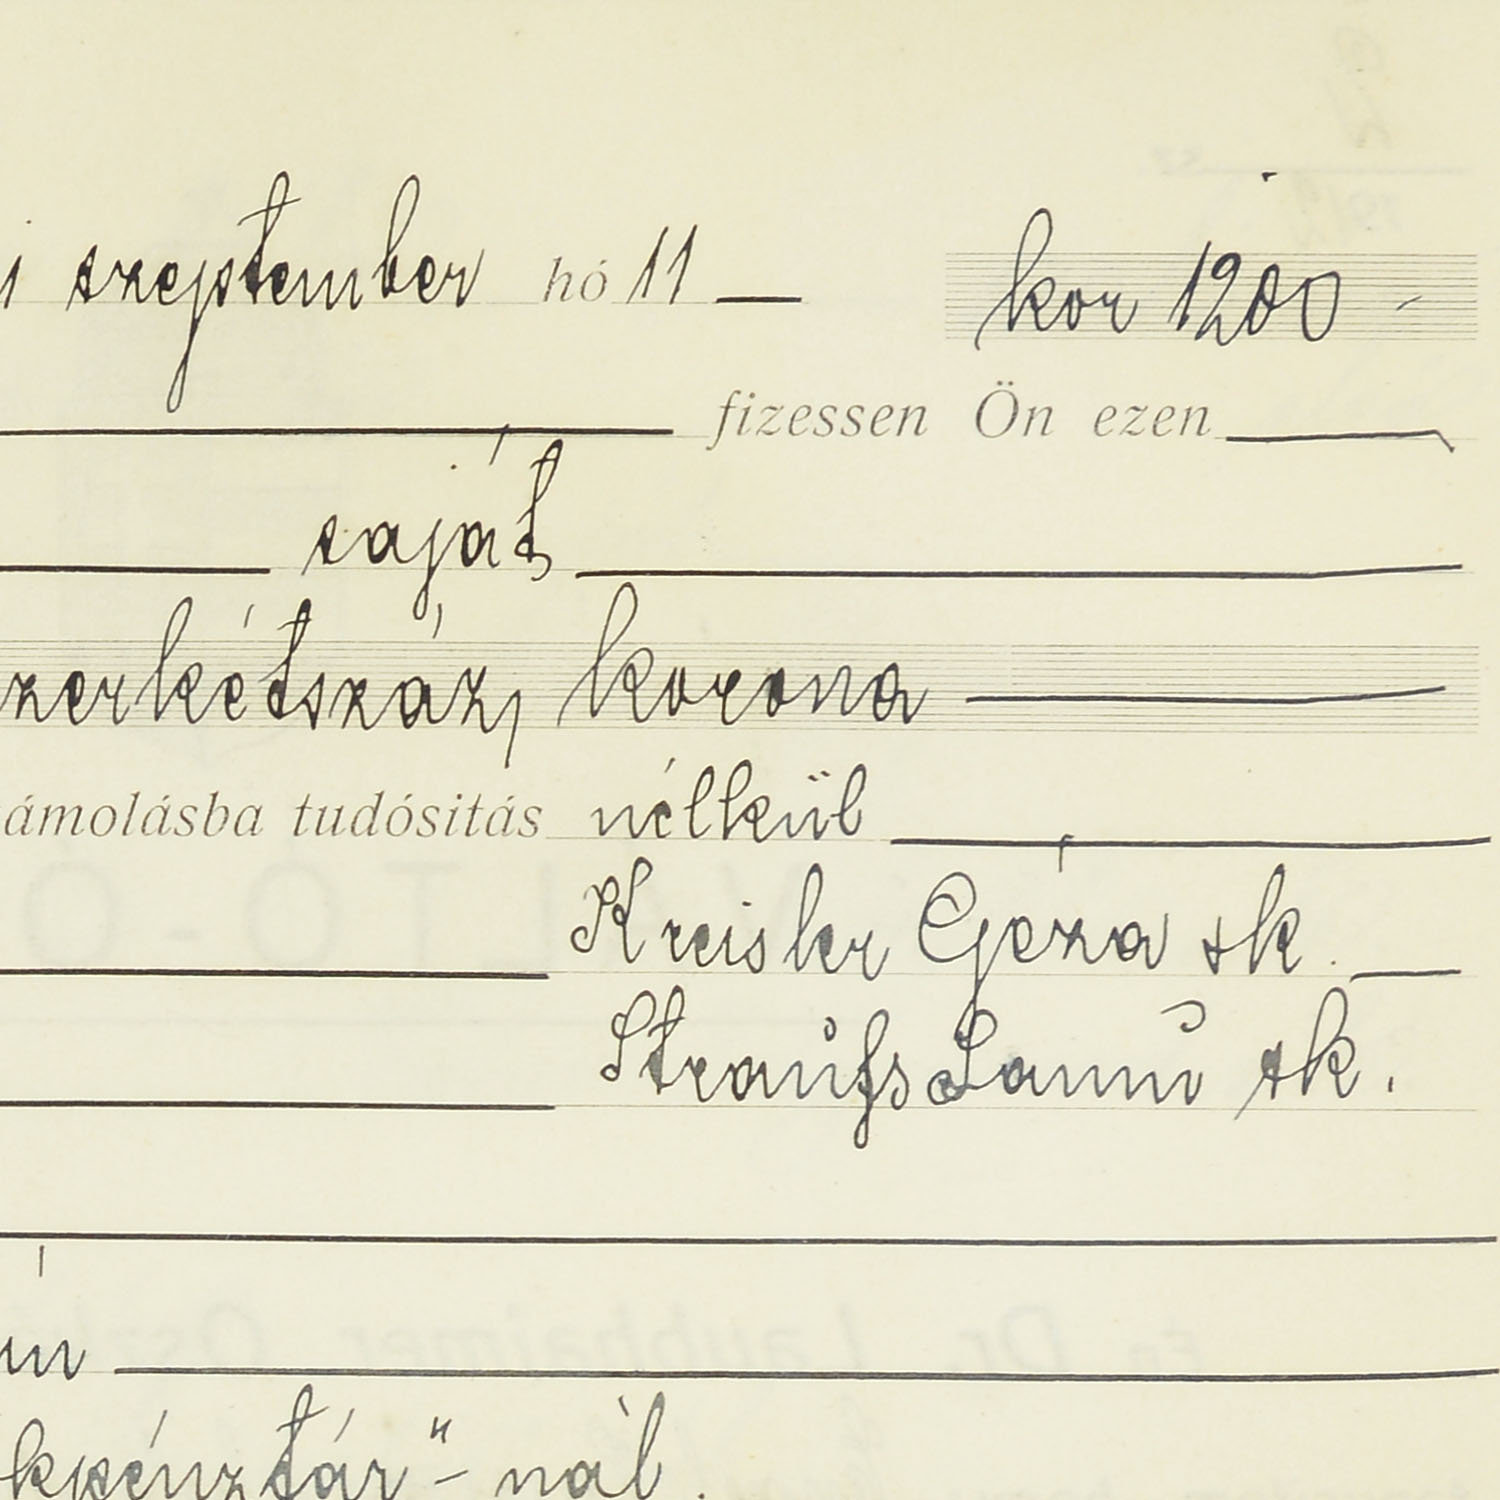 i szeptember hó 11 — kor 1200 -
fizessen Ön ezen
saját
zerkétszáz, korona
ámolásba tudósitás nélkül
Kreisler Géza sk.
Strauss Samu sk.
kpénztár"- nál.